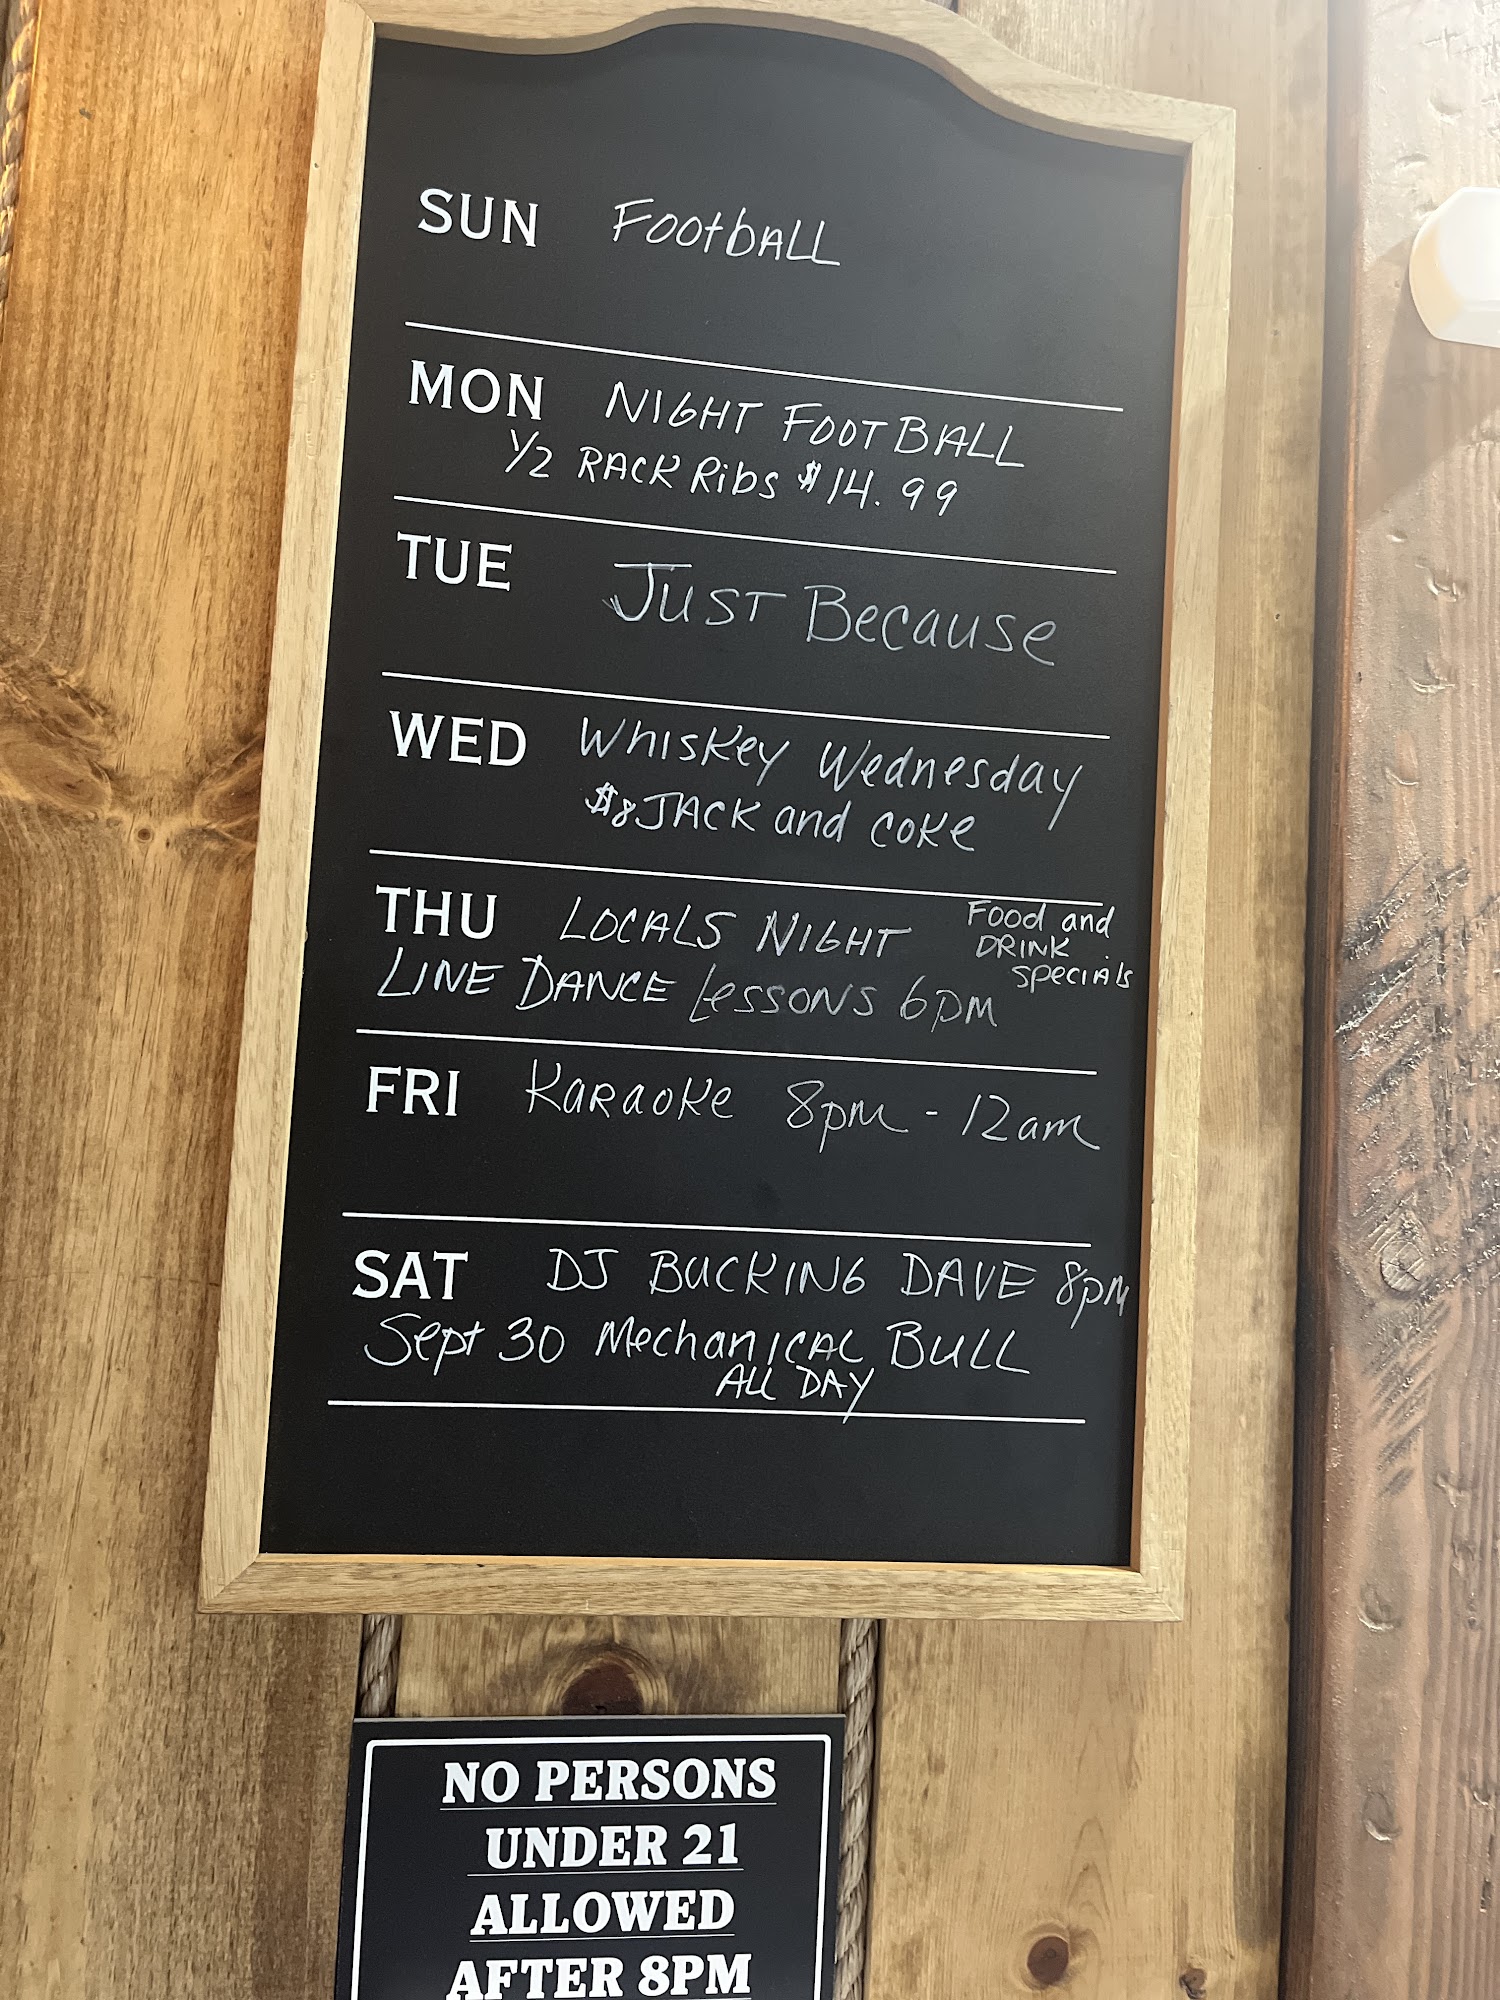 SUN FootbALL
MON NIGHT FOOTBALL
1/2 RACK Ribs $14.99
TUE JUST Because
WED WhisKey Wednesday
$8 JACK and coKe
THU LOCALS NIGHT Food and
DRINK
specials
LINE DANCE Lessons 6pm
FRI KaRaoKe 8pm - 12am
SAT DJ BUCKING DAVE 8pm
Sept 30 MechanICAL BULL
ALL DAY
NO PERSONS
UNDER 21
ALLOWED
AFTER 8PM